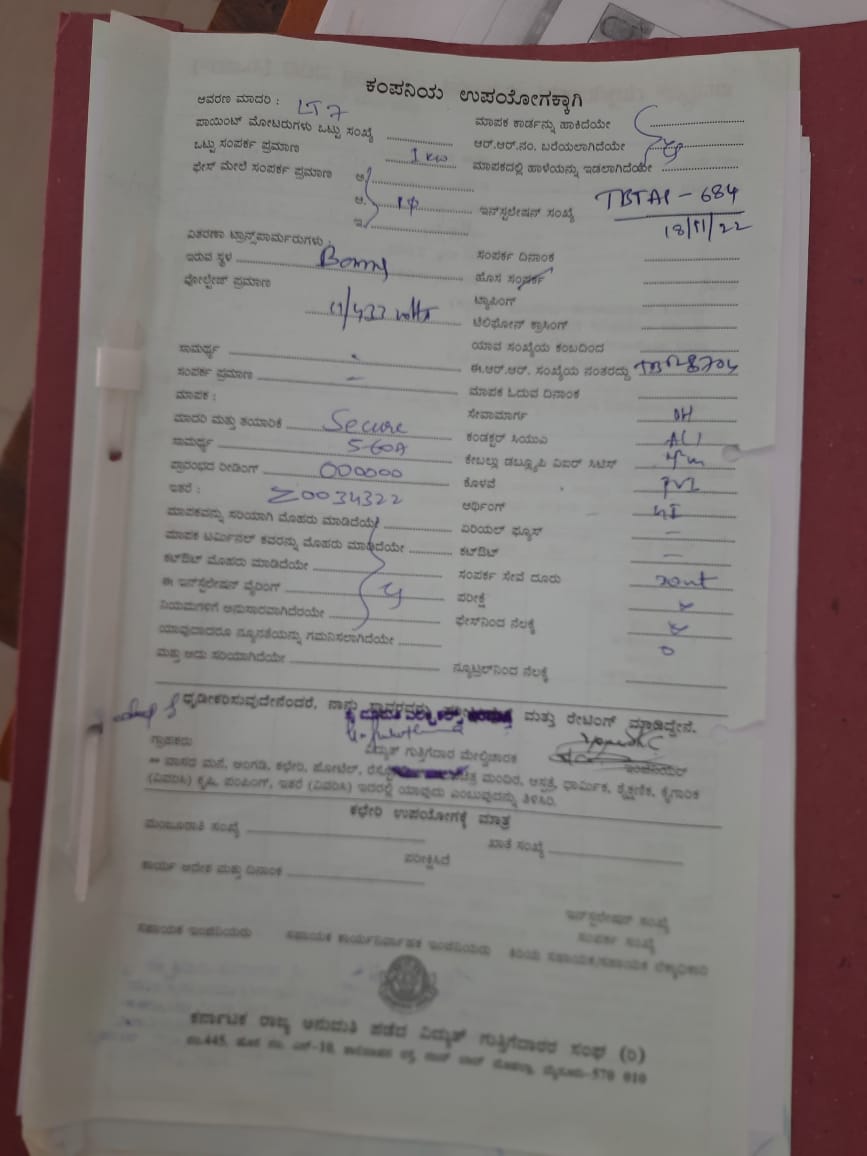 ಕಂಪನಿಯ ಉಪಯೋಗಕ್ಕಾಗಿ
ಆವರಣ ಮಾದರಿ : LT 7
ಮಾಪಕ ಕಾರ್ಡನ್ನು ಹಾಕಿದೆಯೇ
ಪಾಯಿಂಟ್ ಮೋಟರುಗಳು ಒಟ್ಟು ಸಂಖ್ಯೆ
ಆರ್.ಆರ್.ನಂ. ಬರೆಯಲಾಗಿದೆಯೇ
ಒಟ್ಟು ಸಂಪರ್ಕ ಪ್ರಮಾಣ 1 kw
ಮಾಪಕದಲ್ಲಿ ಹಾಳೆಯನ್ನು ಇಡಲಾಗಿದೆಯೇ
ಫೇಸ್ ಮೇಲೆ ಸಂಪರ್ಕ ಪ್ರಮಾಣ ಅ.
ಆ. 1φ
ಇ.
ಇನ್‌ಸ್ಟಲೇಷನ್ ಸಂಖ್ಯೆ - 684
18/11/22
ವಿತರಣಾ ಟ್ರಾನ್ಸ್‌ಫಾರ್ಮರುಗಳು :
ಸಂಪರ್ಕ ದಿನಾಂಕ
ಇರುವ ಸ್ಥಳ
ಹೊಸ ಸಂಪರ್ಕ
ವೋಲ್ಟೇಜ್ ಪ್ರಮಾಣ 11/433 volts
ಟ್ಯಾಪಿಂಗ್
ಟೆಲಿಫೋನ್ ಕ್ರಾಸಿಂಗ್
ಯಾವ ಸಂಖ್ಯೆಯ ಕಂಬದಿಂದ
ಸಾಮರ್ಥ್ಯ
ಈ.ಆರ್.ಆರ್. ಸಂಖ್ಯೆಯ ನಂತರದ್ದು
ಸಂಪರ್ಕ ಪ್ರಮಾಣ –
ಮಾಪಕ ಓದುವ ದಿನಾಂಕ
ಮಾಪಕ :
ಸೇವಾಮಾರ್ಗ OH
ಮಾದರಿ ಮತ್ತು ತಯಾರಿಕೆ Secure
ಕಂಡಕ್ಟರ್ ಸಿಯುಎ
ಸಾಮರ್ಥ್ಯ 5-60A
ಕೇಬಲ್ಲು ಡಬ್ಲ್ಯೂಪಿ ವಿಐಆರ್ ಸಿಟಿಸ್
ಪ್ರಾರಂಭದ ರೀಡಿಂಗ್ 000000
ಕೊಳವೆ
ಇತರೆ : Z0034322
ಆರ್ಥಿಂಗ್ GI
ಮಾಪಕವನ್ನು ಸರಿಯಾಗಿ ಮೊಹರು ಮಾಡಿದೆಯೆ
ಏರಿಯಲ್ ಫ್ಯೂಸ್ –
ಮಾಪಕ ಟರ್ಮಿನಲ್ ಕವರನ್ನು ಮೊಹರು ಮಾಡಿದೆಯೇ
ಕಟ್‌ಔಟ್ –
ಕಟ್‌ಔಟ್ ಮೊಹರು ಮಾಡಿದೆಯೇ
ಸಂಪರ್ಕ ಸೇವೆ ದೂರು
ಈ ಇನ್‌ಸ್ಟಲೇಷನ್ ವೈರಿಂಗ್
ಪರೀಕ್ಷೆ
ನಿಯಮಗಳಿಗೆ ಅನುಸಾರವಾಗಿದೆಯೇ
ಫೇಸ್‌ನಿಂದ ನೆಲಕ್ಕೆ
ಯಾವುದಾದರೂ ನ್ಯೂನತೆಯನ್ನು ಗಮನಿಸಲಾಗಿದೆಯೇ
ಮತ್ತು ಅದು ಸರಿಯಾಗಿದೆಯೇ
ನ್ಯೂಟ್ರಲ್‌ನಿಂದ ನೆಲಕ್ಕೆ
ಧೃಡೀಕರಿಸುವುದೇನೆಂದರೆ, ನಾನು ಮತ್ತು ರೇಟಿಂಗ್ ಮಾಡಿದ್ದೇನೆ.
ಗ್ರಾಹಕರು
ವಿದ್ಯುತ್ ಗುತ್ತಿಗೆದಾರ ಮೇಲ್ವಿಚಾರಕ
ಇಂಜಿನಿಯರ್
** ವಾಸದ ಮನೆ, ಅಂಗಡಿ, ಕಛೇರಿ, ಹೋಟೆಲ್, ಮಂದಿರ, ಆಸ್ಪತ್ರೆ, ಧಾರ್ಮಿಕ, ಶೈಕ್ಷಣಿಕ, ಕೈಗಾರಿಕ
(ವಿವರಿಸಿ) ಕೃಷಿ, ಪಂಪಿಂಗ್, ಇತರೆ (ವಿವರಿಸಿ) ಇದರಲ್ಲಿ ಯಾವುದು ಎಂಬುವುದನ್ನು ತಿಳಿಸಿರಿ.
ಕಛೇರಿ ಉಪಯೋಗಕ್ಕೆ ಮಾತ್ರ
ಮಂಜೂರಾತಿ ಸಂಖ್ಯೆ
ಖಾತೆ ಸಂಖ್ಯೆ
ಪರೀಕ್ಷಿಸಿದೆ
ಕಾರ್ಯ ಆದೇಶ ಮತ್ತು ದಿನಾಂಕ
ಇನ್‌ಸ್ಟಲೇಷನ್ ಸಂಖ್ಯೆ
ಸಂಪರ್ಕ ಸಂಖ್ಯೆ
ಸಹಾಯಕ ಇಂಜಿನಿಯರು
ಸಹಾಯಕ ಕಾರ್ಯನಿರ್ವಾಹಕ ಇಂಜಿನಿಯರು
ಕಿರಿಯ ಸಹಾಯಕ/ಸಹಾಯಕ ಲೆಕ್ಕಾಧಿಕಾರಿ
ಕರ್ನಾಟಕ ರಾಜ್ಯ ಅನುಮತಿ ಪಡೆದ ವಿದ್ಯುತ್ ಗುತ್ತಿಗೆದಾರರ ಸಂಘ (ರಿ)
ನಂ.445, ಹೊಸ ನಂ. ಮೈಸೂರು-570 010